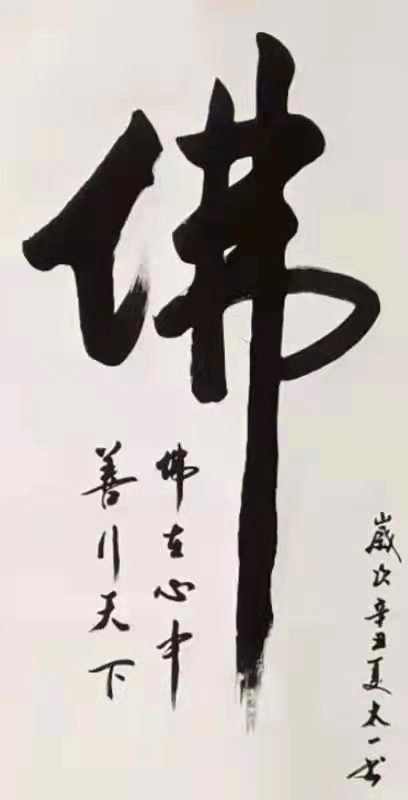 佛
佛在心中
善行天下
歲次辛丑夏太一书